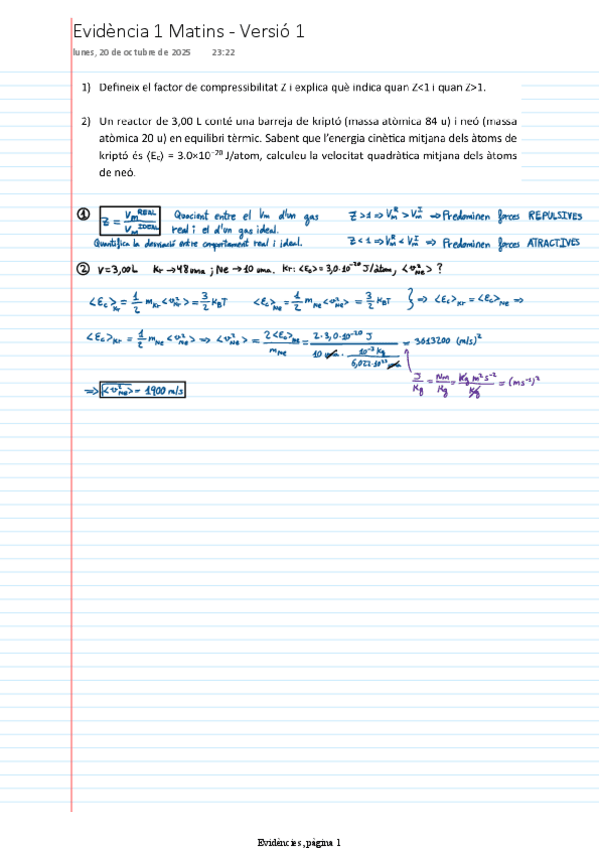 Evidència 1 Matins - Versió 1
lunes, 20 de octubre de 2025 23:22
1) Defineix el factor de compressibilitat Z i explica què indica quan Z<1 i quan Z>1.
2) Un reactor de 3,00 L conté una barreja de kriptó (massa atòmica 84 u) i neó (massa
atòmica 20 u) en equilibri tèrmic. Sabent que l'energia cinètica mitjana dels àtoms de
kriptó és ⟨Ec⟩ = 3.0×10⁻²⁰ J/atom, calculeu la velocitat quadràtica mitjana dels àtoms
de neó.
① Z = Vm^REAL / Vm^IDEAL Quocient entre el Vm d'un gas
real i el d'un gas ideal.
Quantifica la desviació entre comportament real i ideal.
Z>1 ⇒ Vm^R > Vm^I ⇒ Predominen forces REPULSIVES
Z<1 ⇒ Vm^R < Vm^I ⇒ Predominen forces ATRACTIVES
② V=3,00L Kr→48 uma ; Ne→10 uma. Kr: <Ec>=3,0·10⁻²⁰ J/àtom, <v²Ne> ?
<Ec>Kr = 1/2 mKr <v²Kr> = 3/2 kBT <Ec>Ne = 1/2 mNe <v²Ne> = 3/2 kBT } ⇒ <Ec>Kr = <Ec>Ne ⇒
<Ec>Kr = 1/2 mNe <v²Ne> ⇒ <v²Ne> = 2<Ec>Ne / mNe = 2·3,0·10⁻²⁰ J / 10 uma · 10⁻³ Kg / 6,022·10²³ uma = 3613200 (m/s)²
J/Kg = Nm/Kg = Kg m² s⁻² / Kg = (ms⁻¹)²
⇒ √<v²Ne> = 1900 m/s
Evidències, página 1